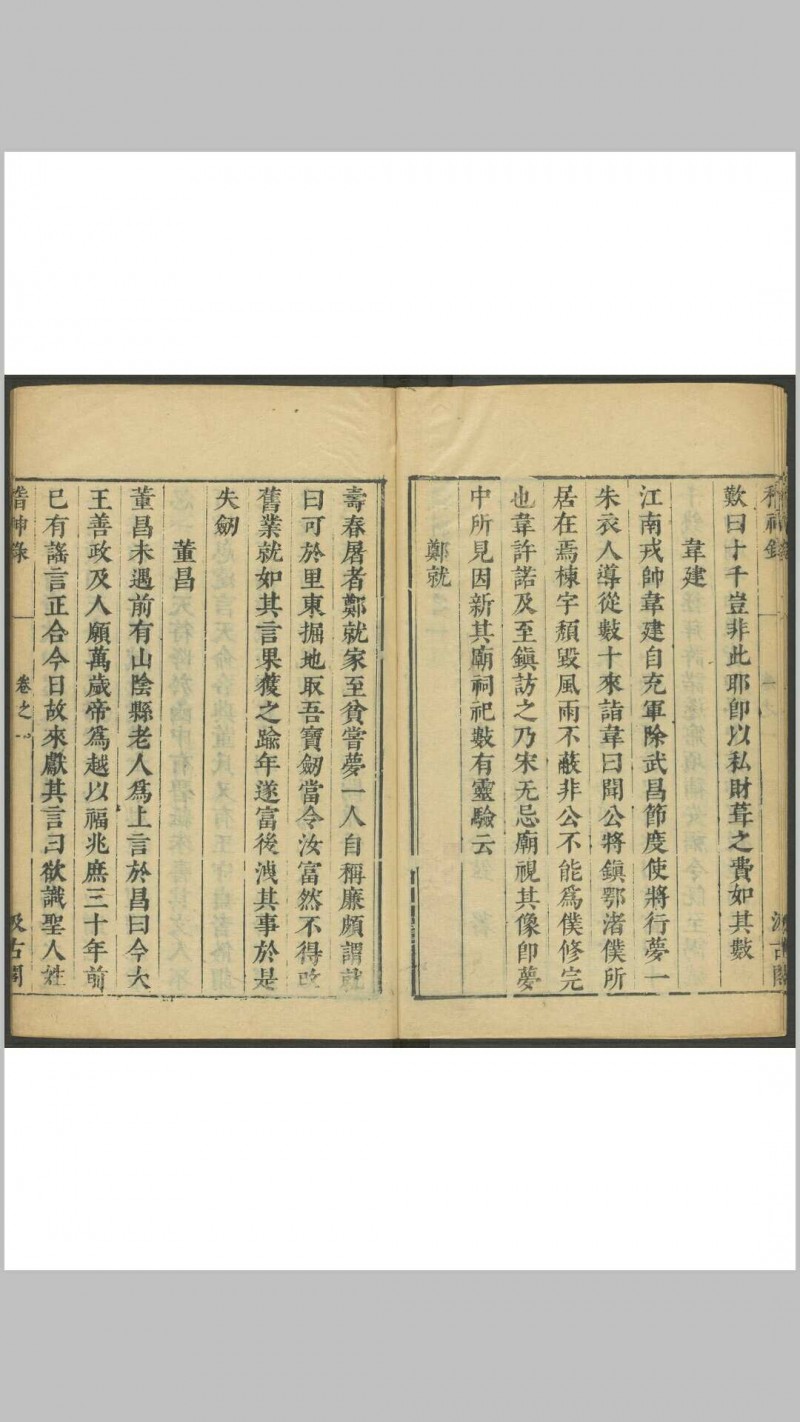 歎曰十千豈非此耶卽以私財葺之費如其數
韋建
江南戎帥韋建自充軍除武昌節度使將行夢一
朱衣人導從數十來詣韋曰聞公將鎭鄂渚僕所
居在焉棟宇頹毀風雨不蔽非公不能爲僕修完
也韋許諾及至鎭訪之乃宋无忌廟視其像卽夢
中所見因新其廟祠祀數有靈驗云
鄭就
壽春屠者鄭就家至貧嘗夢一人自稱廉頗謂就
曰可於里東掘地取吾寶劒當令汝富然不得改
舊業就如其言果獲之踰年遂富後洩其事於是
失劒
董昌
董昌未遇前有山陰縣老人爲上言於昌曰今大
王善政及人願萬歲帝爲越以福兆庶三十年前
已有謠言正合今日故來獻其言曰欲識聖人姓
稽神錄
卷之一
汲古閣